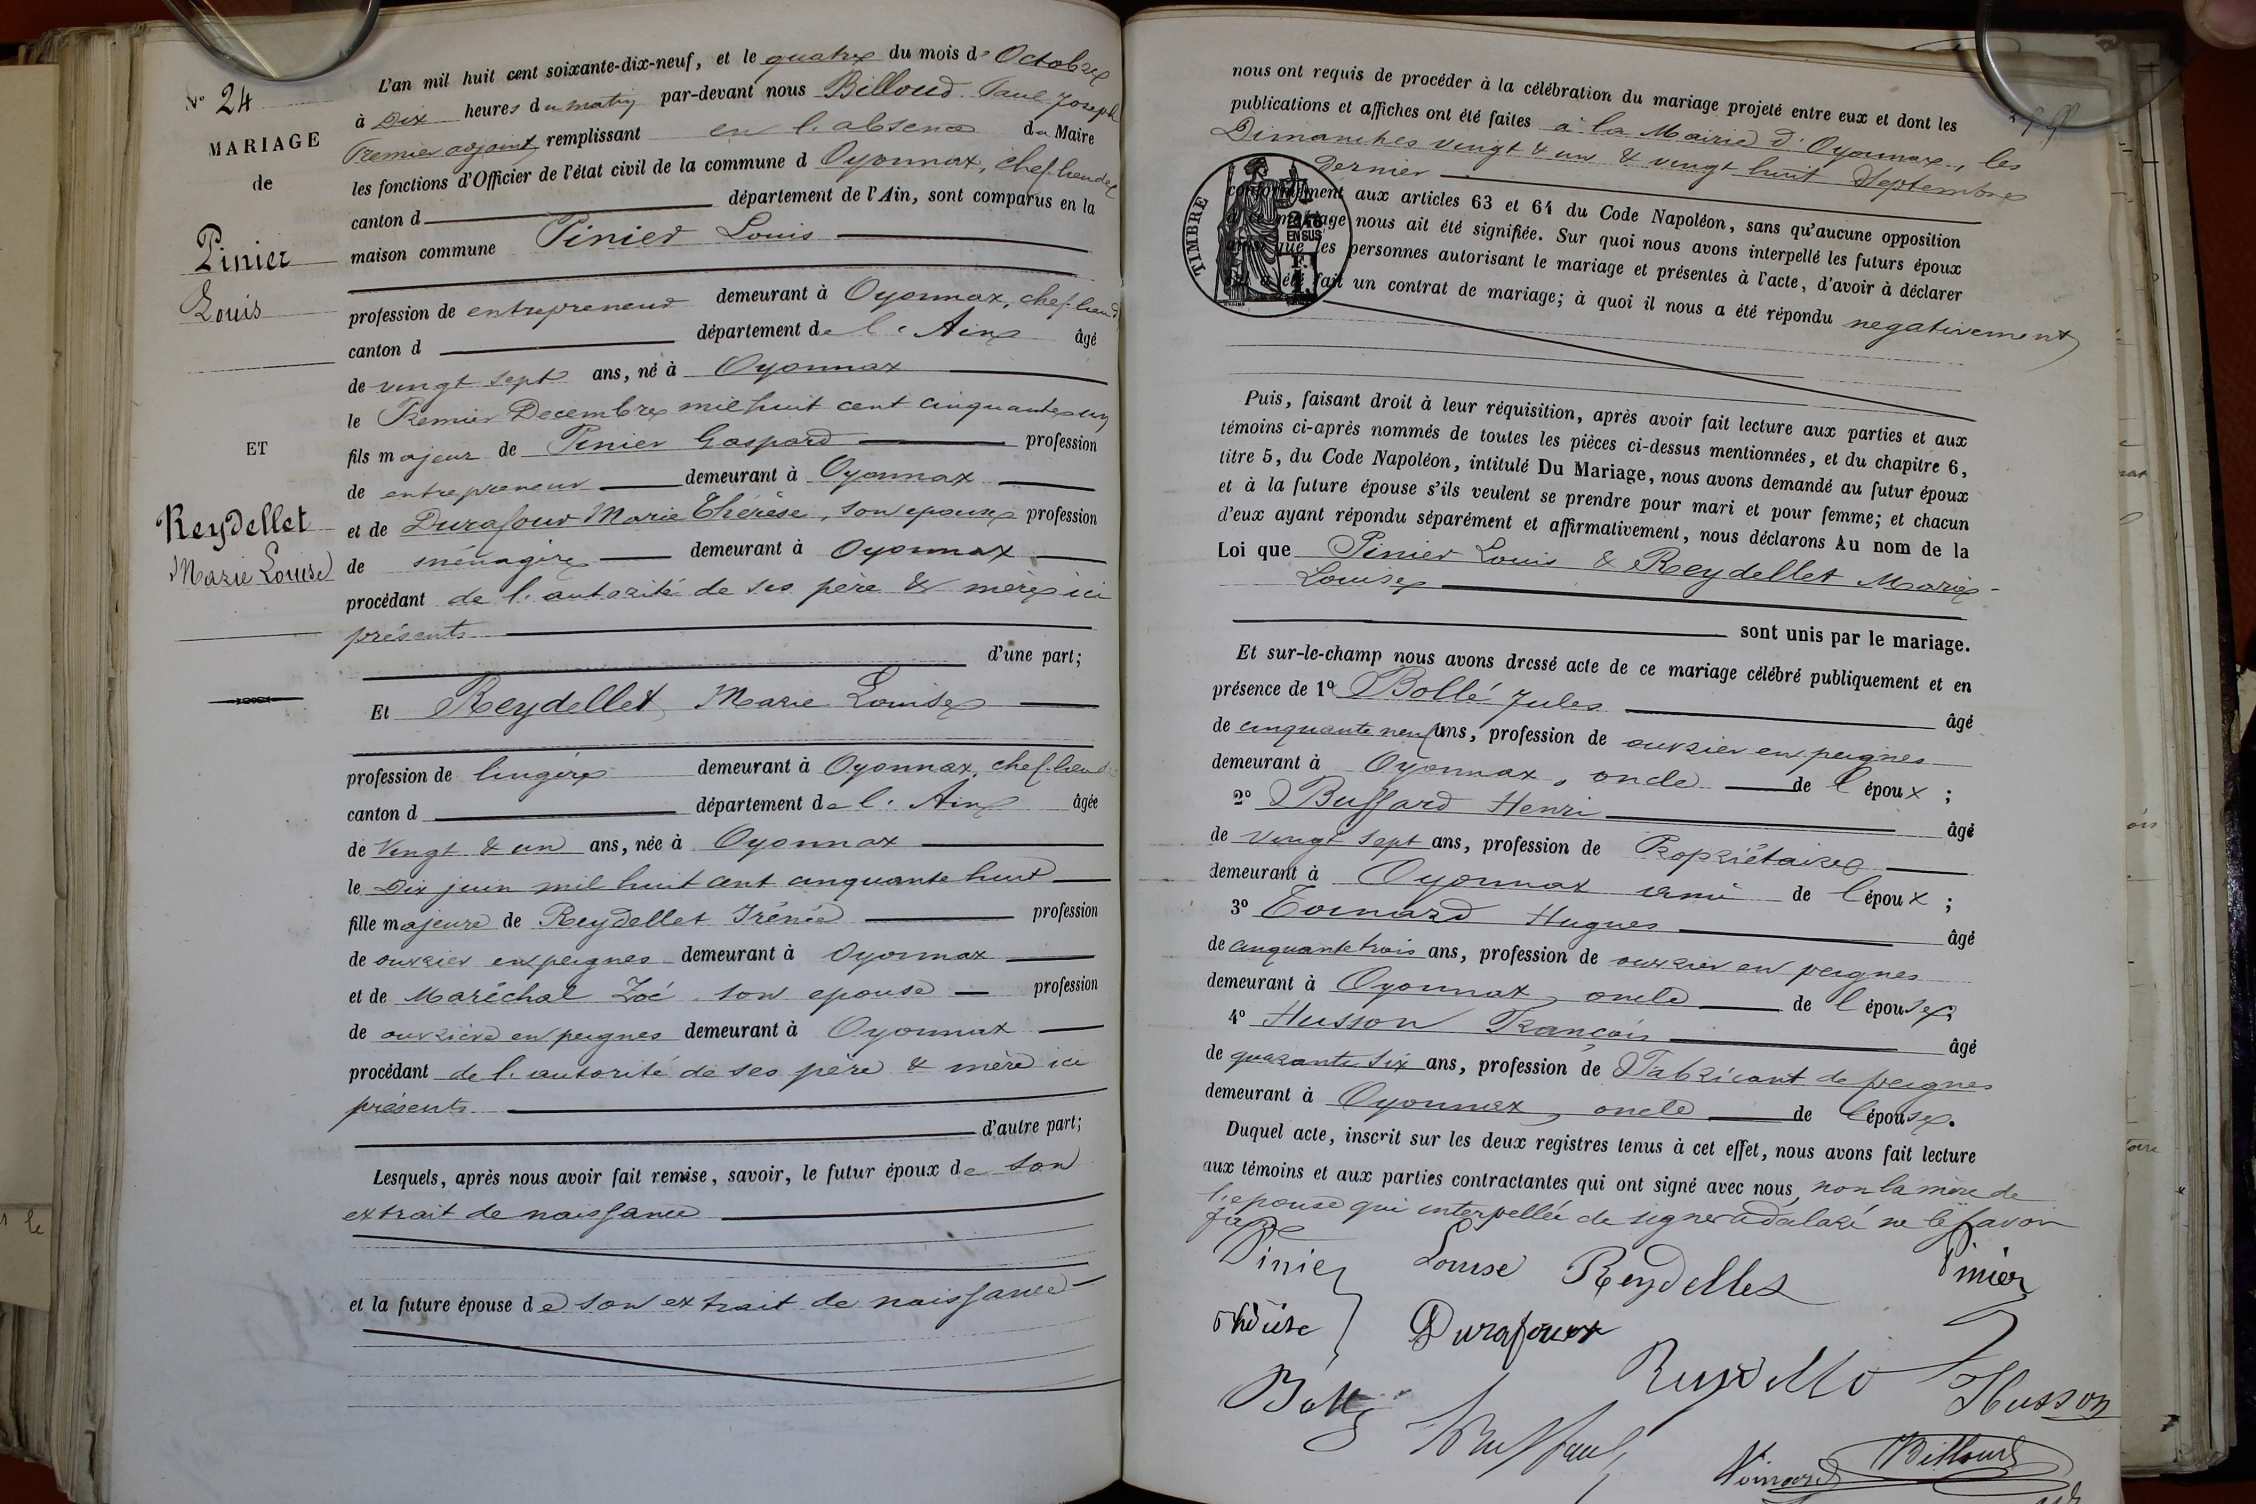 N° 24
MARIAGE
de
Pinier
Louis
ET
Reydellet
Marie Louise
L'an mil huit cent soixante-dix-neuf, et le quatre du mois d'Octobre
à Dix heures du matin par-devant nous Billoud Paul Joseph
Premier adjoint, remplissant en l'absence du Maire
les fonctions d'Officier de l'état civil de la commune d Oyonnax, chef-lieu de
canton d département de l'Ain, sont comparus en la
maison commune Pinier Louis
profession de entrepreneur demeurant à Oyonnax, chef-lieu d
canton d département de l'Ain âgé
de vingt sept ans, né à Oyonnax
le Premier Decembre mil huit cent cinquante un
fils majeur de Pinier Gaspard profession
de entrepreneur demeurant à Oyonnax
et de Durafour Marie Thérèse, son epouse profession
de ménagère demeurant à Oyonnax
procédant de l'autorité de ses père & mère ici
présents
d'une part;
Et Reydellet Marie Louise
profession de lingère demeurant à Oyonnax, chef-lieu d
canton d département de l'Ain âgée
de Vingt & un ans, née à Oyonnax
le Dix juin mil huit cent cinquante huit
fille majeure de Reydellet Irénée profession
de ouvrier en peignes demeurant à Oyonnax
et de Maréchal Zoé son epouse profession
de ouvrière en peignes demeurant à Oyonnax
procédant de l'autorité de ses père & mère ici
présents
d'autre part;
Lesquels, après nous avoir fait remise, savoir, le futur époux de son
extrait de naissance
et la future épouse de son extrait de naissance
nous ont requis de procéder à la célébration du mariage projeté entre eux et dont les
publications et affiches ont été faites à la Mairie d'Oyonnax, les
Dimanches vingt & un & vingt huit Septembre
Dernier
conformément aux articles 63 et 64 du Code Napoléon, sans qu'aucune opposition
à ce mariage nous ait été signifiée. Sur quoi nous avons interpellé les futurs époux
ainsi que les personnes autorisant le mariage et présentes à l'acte, d'avoir à déclarer
s'il a été fait un contrat de mariage; à quoi il nous a été répondu negativement
TIMBRE
EN SUS
Puis, faisant droit à leur réquisition, après avoir fait lecture aux parties et aux
témoins ci-après nommés de toutes les pièces ci-dessus mentionnées, et du chapitre 6,
titre 5, du Code Napoléon, intitulé Du Mariage, nous avons demandé au futur époux
et à la future épouse s'ils veulent se prendre pour mari et pour femme; et chacun
d'eux ayant répondu séparément et affirmativement, nous déclarons Au nom de la
Loi que Pinier Louis & Reydellet Marie
Louise
sont unis par le mariage.
Et sur-le-champ nous avons dressé acte de ce mariage célébré publiquement et en
présence de 1° Bollé Jules âgé
de cinquante neuf ans, profession de ouvrier en peignes
demeurant à Oyonnax, oncle de l'époux;
2° Buffard Henri âgé
de vingt sept ans, profession de Propriétaire
demeurant à Oyonnax ami de l'époux;
3° Toinard Hugues âgé
de cinquante trois ans, profession de ouvrier en peignes
demeurant à Oyonnax, oncle de l'épouse;
4° Husson François âgé
de quarante six ans, profession de Fabricant de peignes
demeurant à Oyonnax, oncle de l'épouse.
Duquel acte, inscrit sur les deux registres tenus à cet effet, nous avons fait lecture
aux témoins et aux parties contractantes qui ont signé avec nous, non la mère de
l'epouse qui interpellée de signer a déclaré ne le savoir
faire
Pinier Louise Reydellet Pinier
Durafour
Reydellet Husson
Bollé Buffard
Toinard Billoud